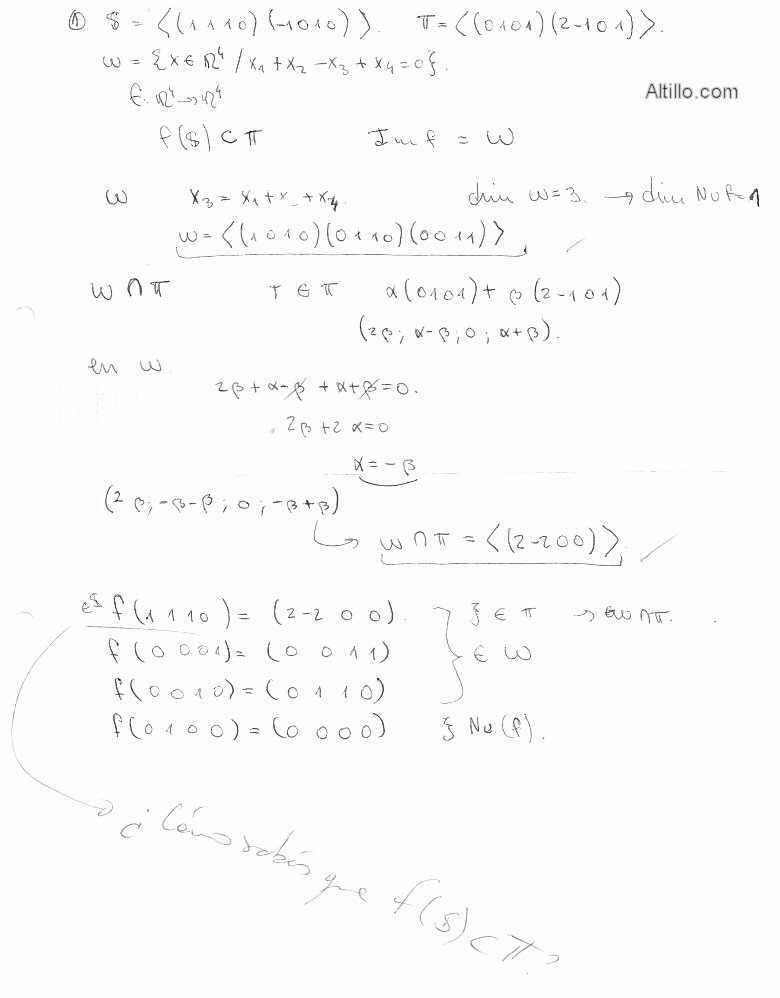 ① $ = <(1 1 1 0) (-1 0 1 0)>. π = <(0 1 0 1) (2 -1 0 1)>.
W = {x ∈ ℝ⁴ / x₁ + x₂ - x₃ + x₄ = 0}.
f: ℝ⁴ → ℝ⁴
Altillo.com
f($) ⊂ π Im f = W
W x₃ = x₁ + x_ + x₄. dim W = 3. → dim Nu f = 1
W = <(1 0 1 0) (0 1 1 0) (0 0 1 1)>
W ∩ π T ∈ π α(0 1 0 1) + β(2 -1 0 1)
(2β; α-β; 0; α+β).
en W.
2β + α - β + α + β = 0.
2β + 2α = 0
α = -β
(2β; -β-β; 0; -β+β)
W ∩ π = <(2 -2 0 0)>
e$ f(1 1 1 0) = (2 -2 0 0). } ∈ π → ∈ W ∩ π.
f(0 0 0 1) = (0 0 1 1) } ∈ W
f(0 0 1 0) = (0 1 1 0)
f(0 1 0 0) = (0 0 0 0) } Nu(f).
¿Cómo sabés que f($) ⊂ π?